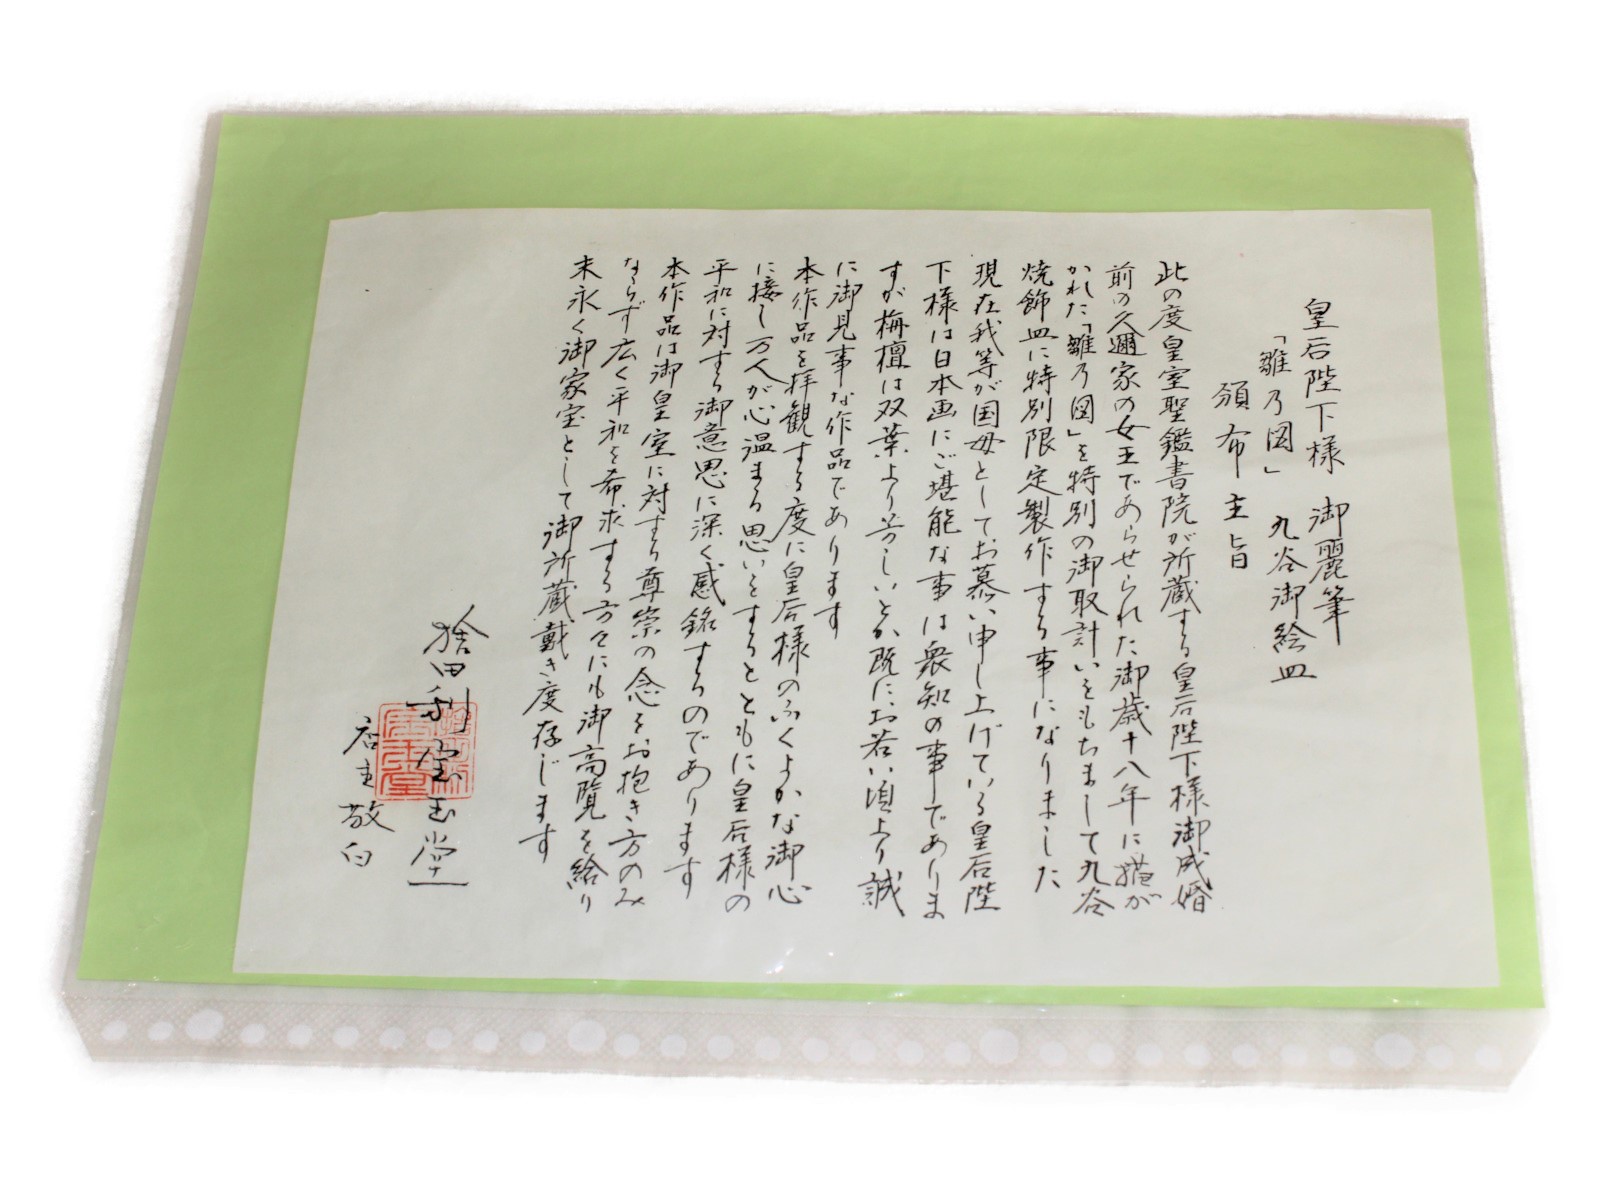 皇后陛下様 御麗筆
「雛乃図」 九谷御絵皿
頒布主旨
此の度皇室聖鑑書院が所蔵する皇后陛下様御成婚
前の久邇家の女王であらせられた御歳十八年に描が
かれた「雛乃図」を特別の御取計いをもちまして九谷
焼飾皿に特別限定製作する事になりました
現在我等が国母としてお慕い申し上げている皇后陛
下様は日本画にご堪能な事は衆知の事でありま
すが栴檀は双葉より芳しいとか既にお若い頃より誠
に御見事な作品であります
本作品を拝観する度に皇后様のふくよかな御心
に接し万人が心温まる思いをするとともに皇后様の
平和に対する御意思に深く感銘するのであります
本作品は御皇室に対する尊崇の念をお抱き方のみ
ならず広く平和を希求する方々にも御高覧を給り
末永く御家宝として御所蔵戴き度存じます
捨田利宝玉堂
店主敬白